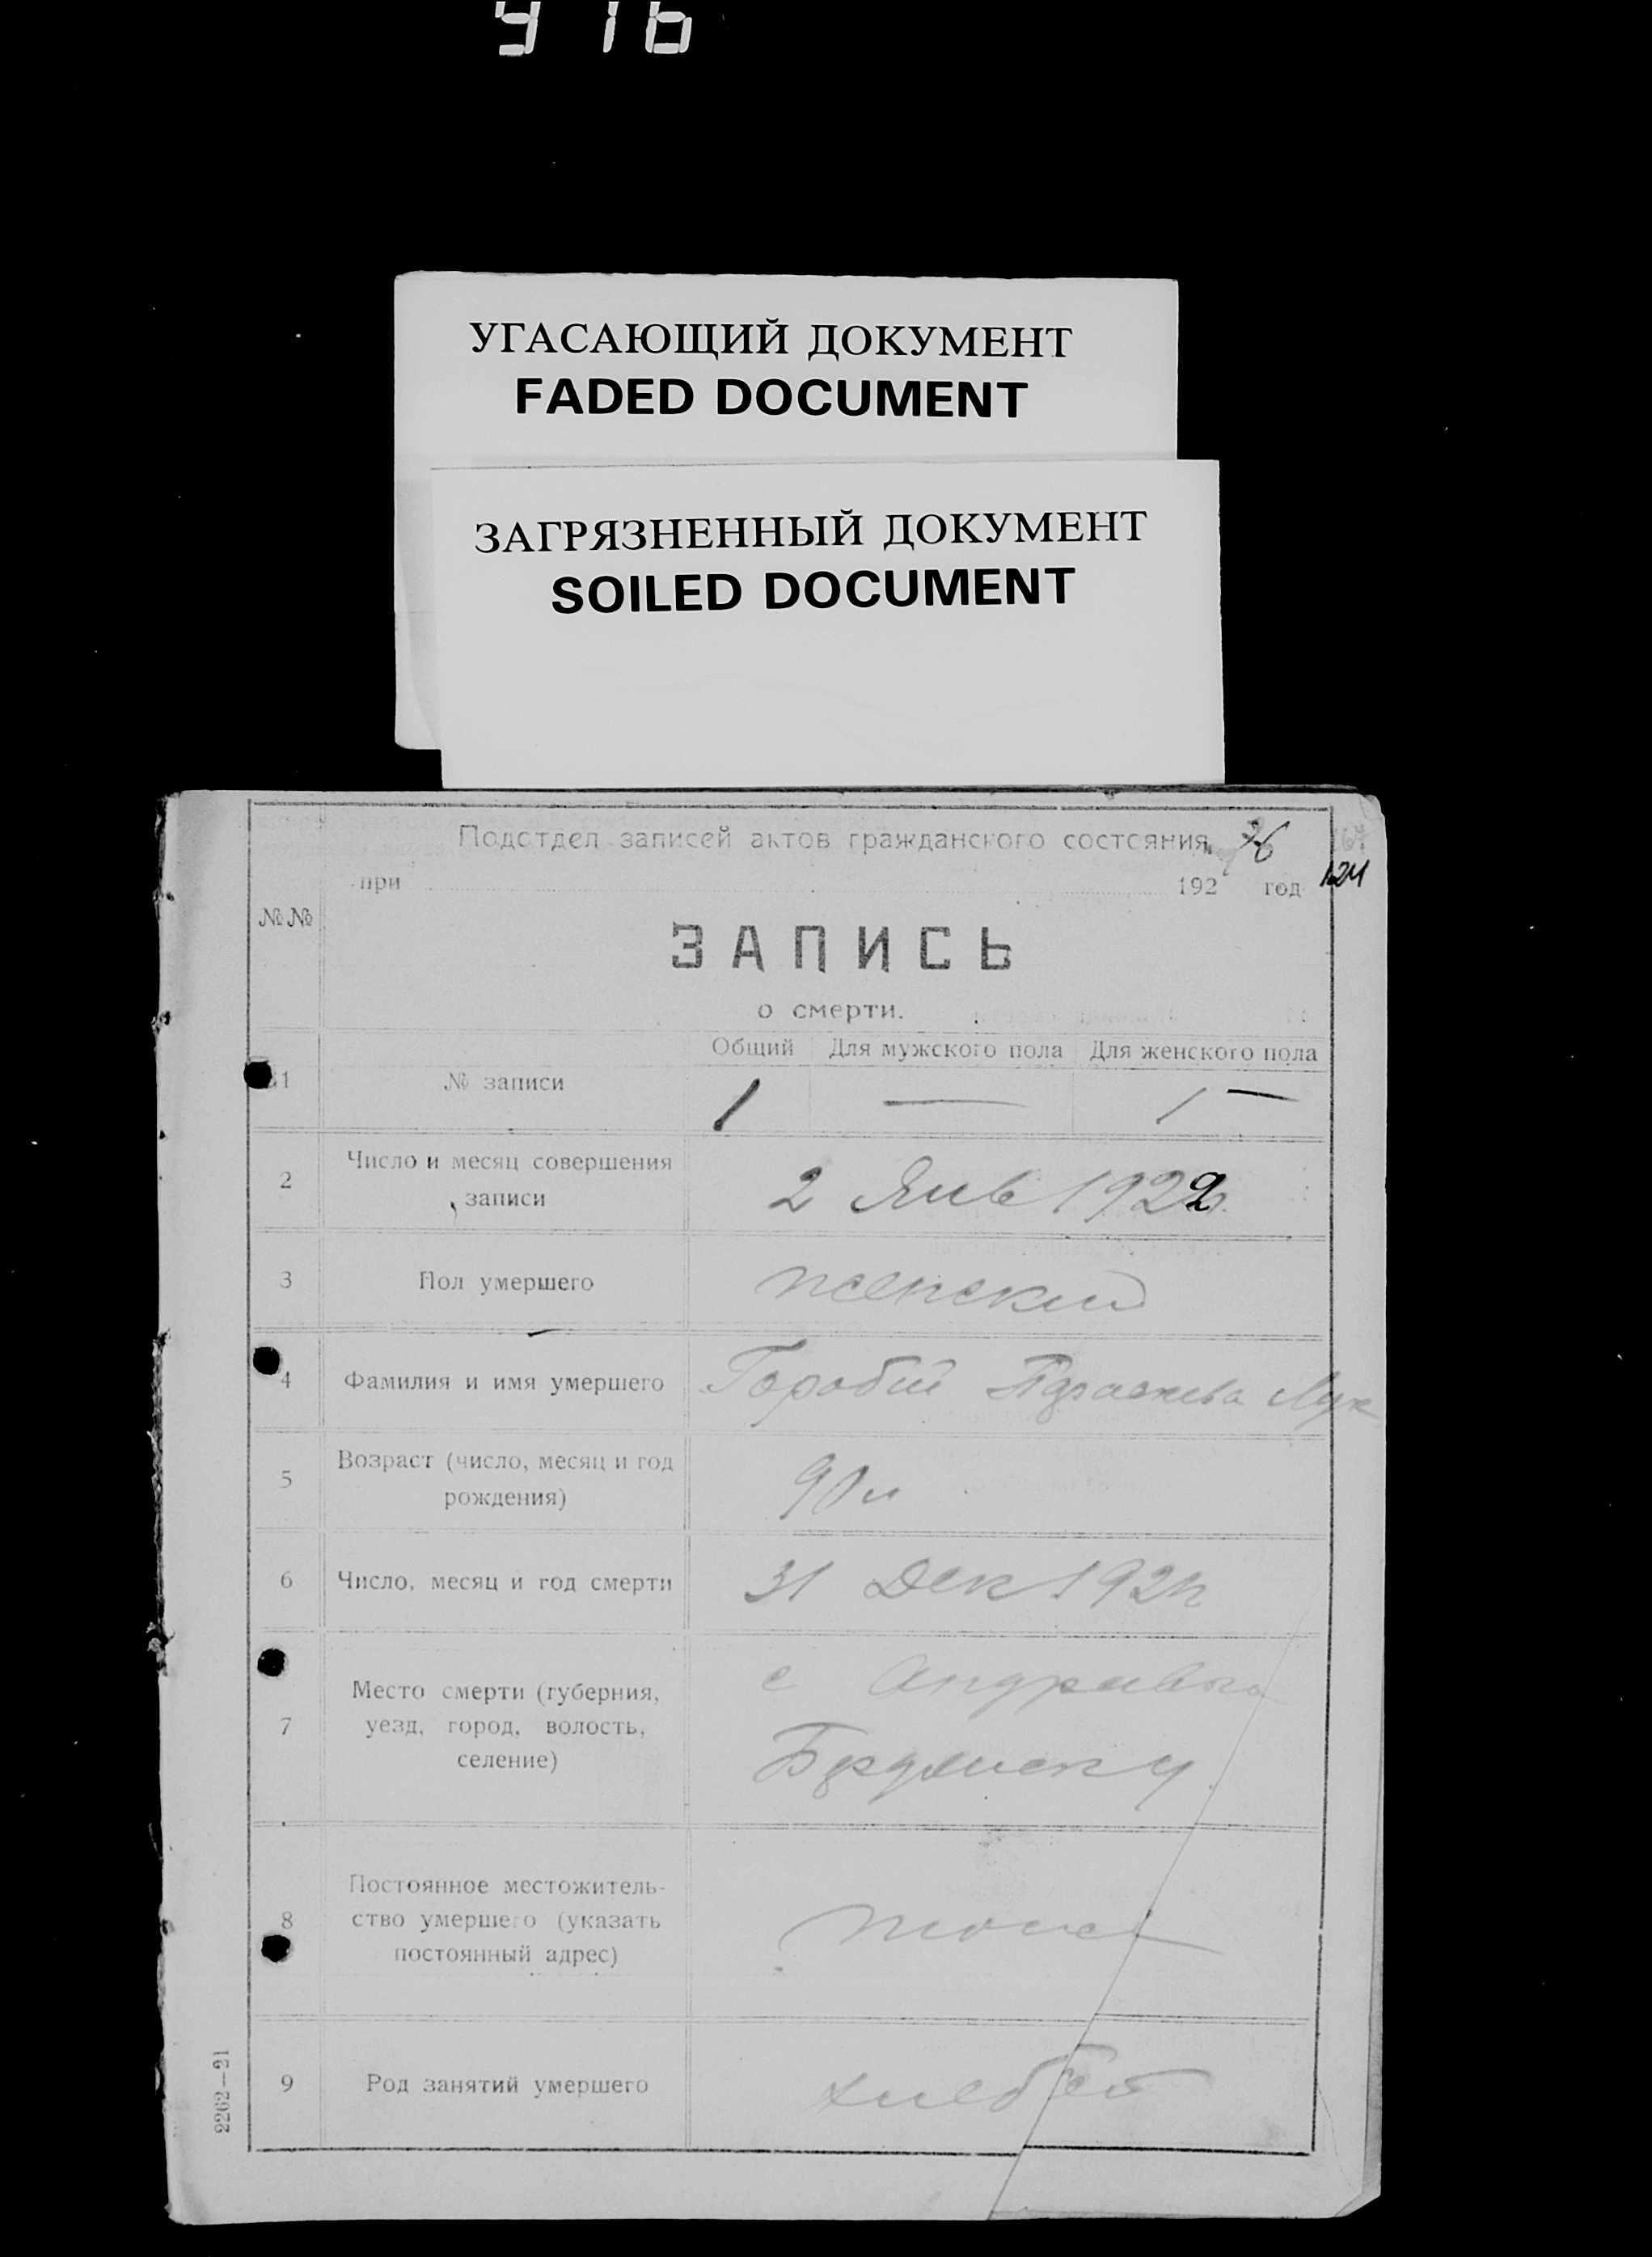 916
УГАСАЮЩИЙ ДОКУМЕНТ
FADED DOCUMENT
ЗАГРЯЗНЕННЫЙ ДОКУМЕНТ
SOILED DOCUMENT
Подотдел записей актов гражданского состояния
при 192 год
124
№№
ЗАПИСЬ
о смерти.
Общий Для мужского пола Для женского пола
1 № записи 1 — 1 —
2 Число и месяц совершения записи 2 Янв 1922
3 Пол умершего женский
4 Фамилия и имя умершего Горобий Лук
5 Возраст (число, месяц и год рождения) 90 л
6 Число, месяц и год смерти 31 Дек
7 Место смерти (губерния, уезд, город, волость, селение) с Андриевка
Бердянск у.
8 Постоянное местожительство умершего (указать постоянный адрес)
9 Род занятий умершего хлебоб
2262—21